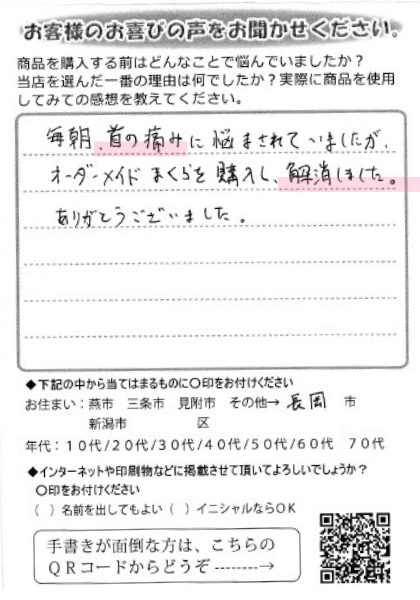 お客様のお喜びの声をお聞かせください。
商品を購入する前はどんなことで悩んでいましたか？
当店を選んだ一番の理由は何でしたか？実際に商品を使用
してみての感想を教えてください。
毎朝、首の痛みに悩まされていましたが、
オーダーメイドまくらを購入し、解消しました。
ありがとうございました。
◆下記の中から当てはまるものに〇印をお付けください
お住まい：燕市　三条市　見附市　その他→ 長岡 市
新潟市　　　　　区
年代：１０代/２０代/３０代/４０代/５０代/６０代　７０代
◆インターネットや印刷物などに掲載させて頂いてよろしいでしょうか？
〇印をお付けください
（　）名前を出してもよい（　）イニシャルならＯＫ
手書きが面倒な方は、こちらの
ＱＲコードからどうぞ--------→